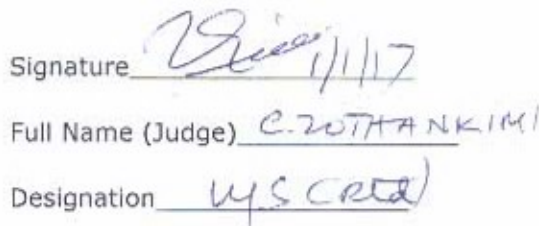 Signature 1/1/17
Full Name (Judge) C. ZOTHANKIMI
Designation